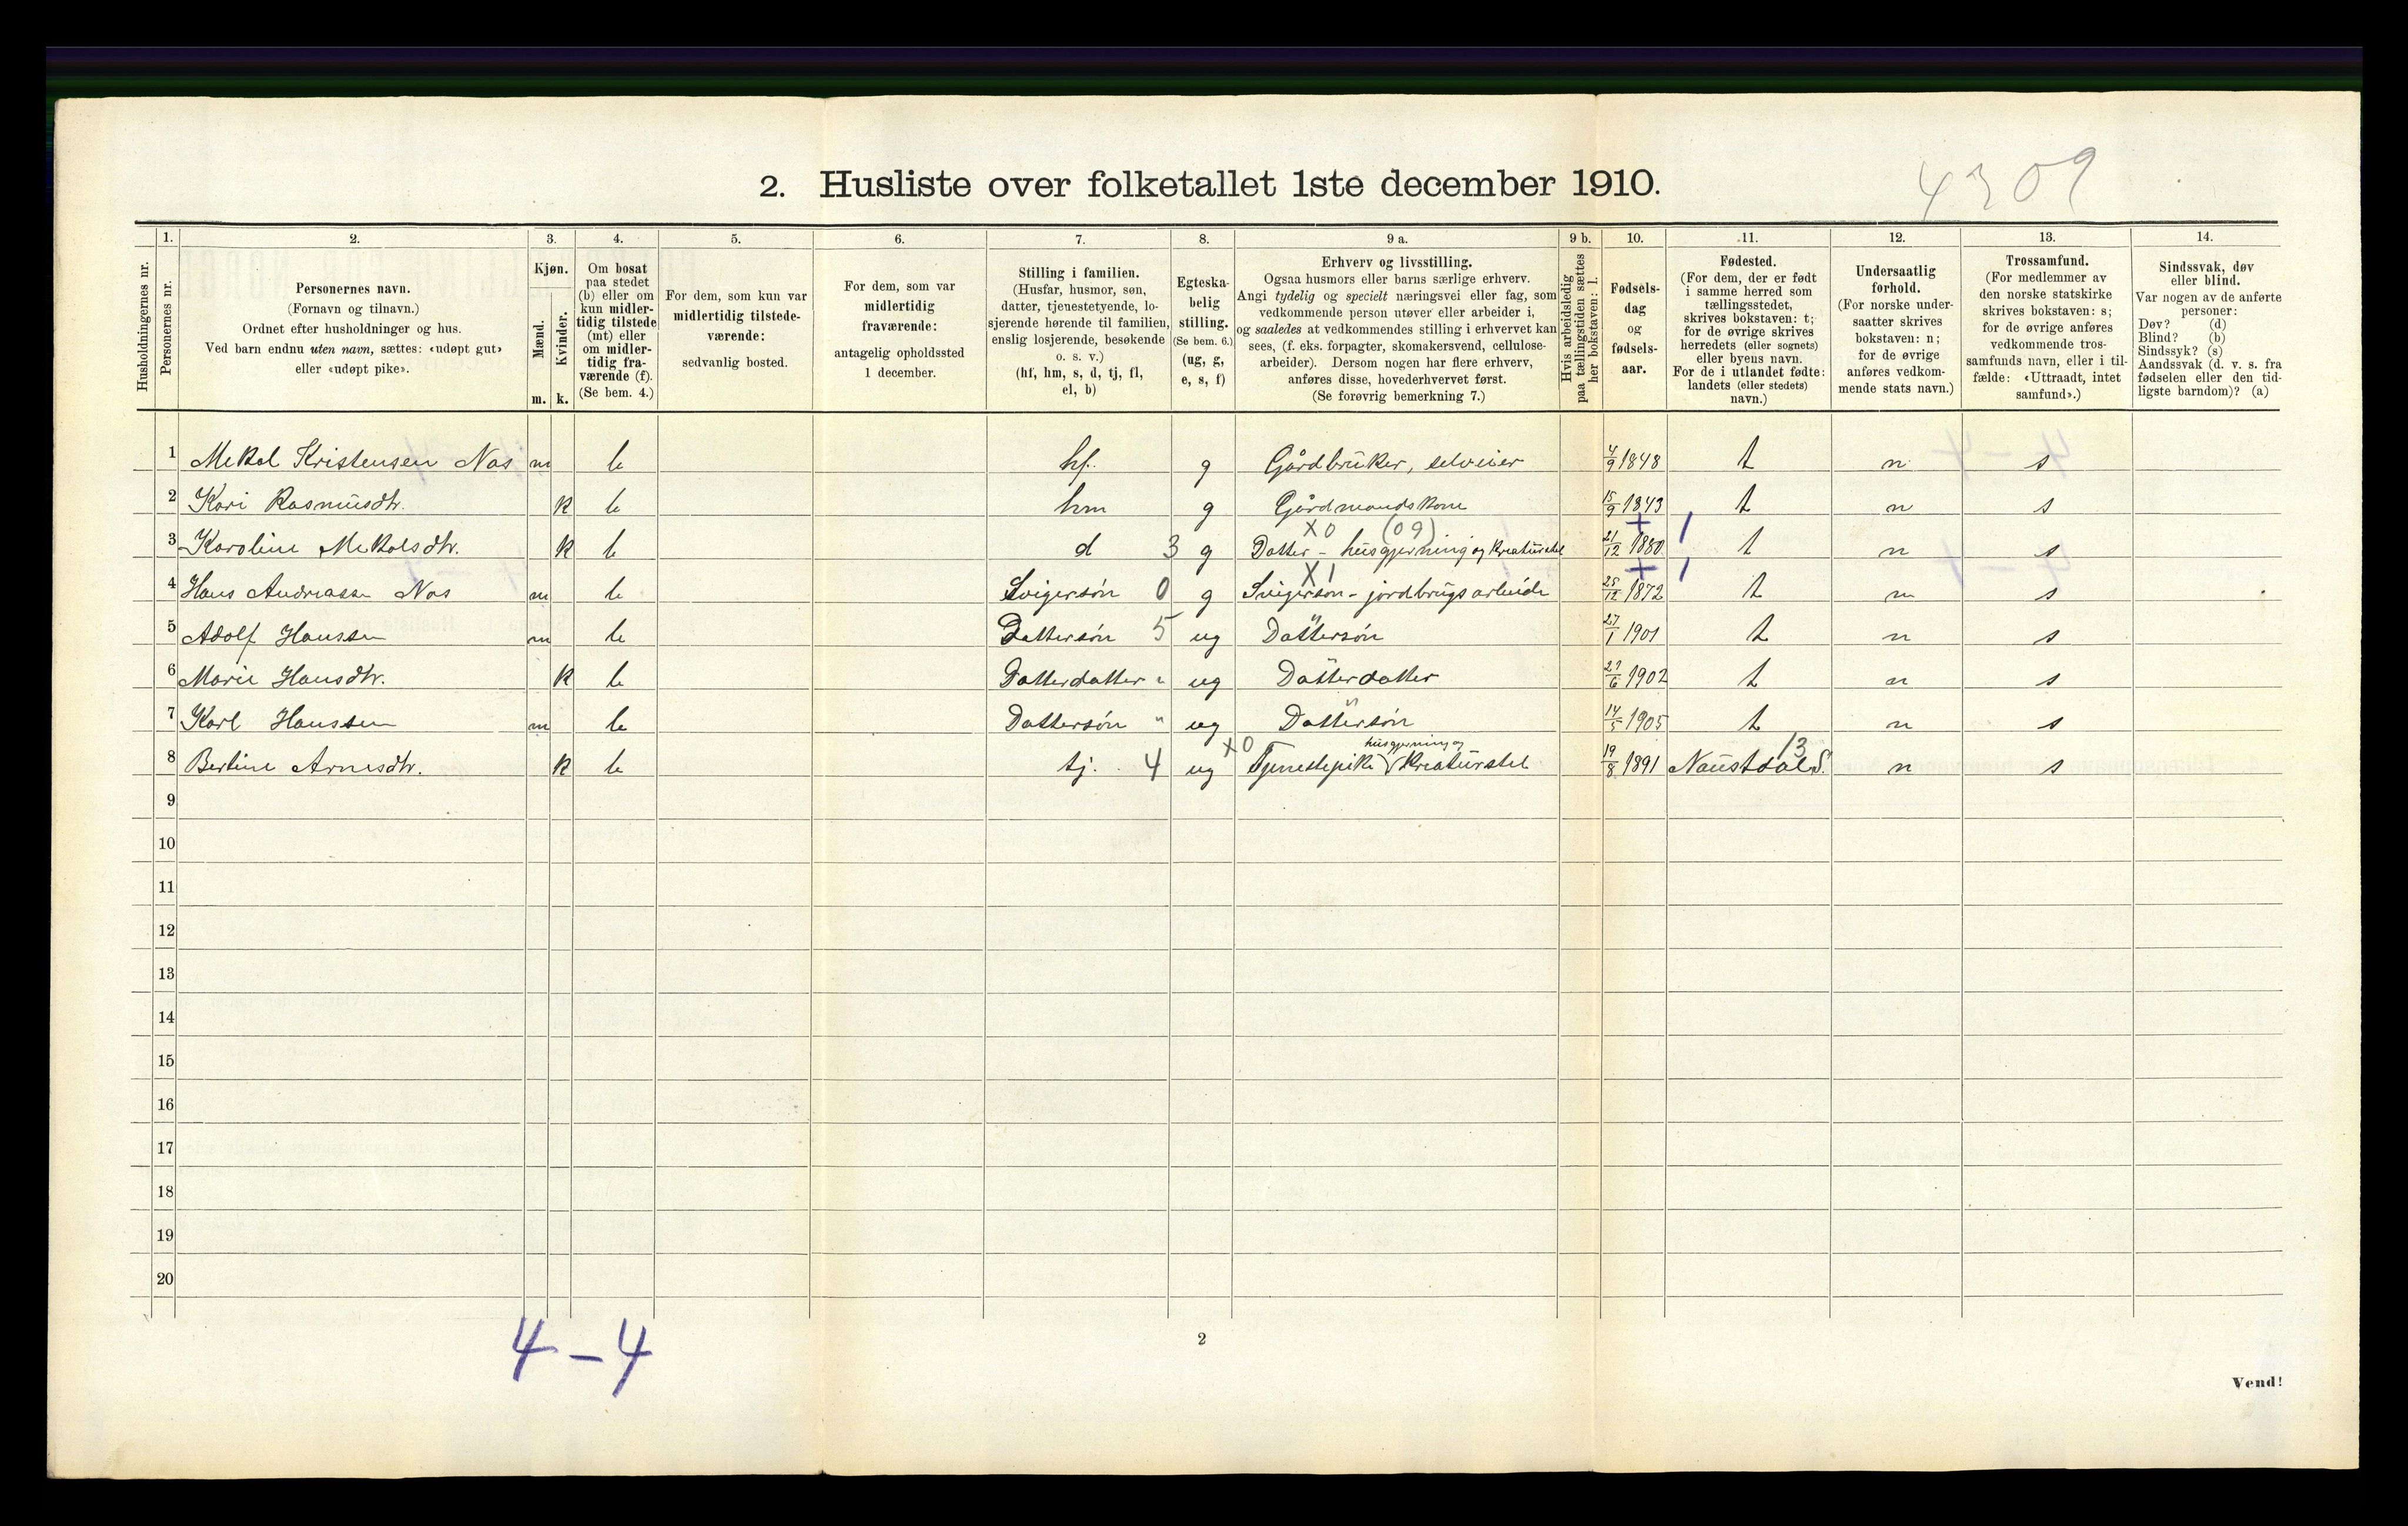 4309
2. Husliste over folketallet 1ste december 1910.
Husholdningernes nr.
1. Personernes nr.
2. Personernes navn.
(Fornavn og tilnavn.)
Ordnet efter husholdninger og hus.
Ved barn endnu uten navn, sættes: «udøpt gut»
eller «udøpt pike».
3. Kjøn.
Mænd. m.
Kvinder. k.
4. Om bosat
paa stedet
(b) eller om
kun midler-
tidig tilstede
(mt) eller
om midler-
tidig fra-
værende (f).
(Se bem. 4.)
5. For dem, som kun var
midlertidig tilstede-
værende:
sedvanlig bosted.
6. For dem, som var
midlertidig
fraværende:
antagelig opholdssted
1 december.
7. Stilling i familien.
(Husfar, husmor, søn,
datter, tjenestetyende, lo-
sjerende hørende til familien,
enslig losjerende, besøkende
o. s. v.)
(hf, hm, s, d, tj, fl,
el, b)
8. Egteska-
belig
stilling.
(Se bem. 6.)
(ug, g,
e, s, f)
9 a. Erhverv og livsstilling.
Ogsaa husmors eller barns særlige erhverv.
Angi tydelig og specielt næringsvei eller fag, som
vedkommende person utøver eller arbeider i,
og saaledes at vedkommendes stilling i erhvervet kan
sees, (f. eks. forpagter, skomakersvend, cellulose-
arbeider). Dersom nogen har flere erhverv,
anføres disse, hovederhvervet først.
(Se forøvrig bemerkning 7.)
9 b. Hvis arbeidsledig
paa tællingstiden sættes
her bokstaven: l.
10. Fødsels-
dag
og
fødsels-
aar.
11. Fødested.
(For dem, der er født
i samme herred som
tællingsstedet,
skrives bokstaven: t;
for de øvrige skrives
herredets (eller sognets)
eller byens navn.
For de i utlandet fødte:
landets (eller stedets)
navn.)
12. Undersaatlig
forhold.
(For norske under-
saatter skrives
bokstaven: n;
for de øvrige
anføres vedkom-
mende stats navn.)
13. Trossamfund.
(For medlemmer av
den norske statskirke
skrives bokstaven: s;
for de øvrige anføres
vedkommende tros-
samfunds navn, eller i til-
fælde: «Uttraadt, intet
samfund».)
14. Sindssvak, døv
eller blind.
Var nogen av de anførte
personer:
Døv? (d)
Blind? (b)
Sindssyk? (s)
Aandssvak (d. v. s. fra
fødselen eller den tid-
ligste barndom)? (a)
1 Mekal Kristensen Nas m b hf. g Gårdbruker, selveier 4/9 1848 t n s
2 Kari Rasmusdtr. k b hm g Gårdmandskone 15/9 1843 t n s
X0 (09) + 1
3 Karoline Mekalsdtr. k b d 3 g Datter - husgjerning og kreaturstel 21/12 1880 t n s
X1 + 1
4 Hans Andreassen Nas m b Svigersøn 0 g Svigersøn - jordbrugsarbeide 25/12 1872 t n s
5 Adolf Hanssen m b Dattersøn 5 ug Dattersøn 27/1 1901 t n s
6 Marie Hansdtr. k b Datterdatter " ug Datterdatter 27/6 1902 t n s
7 Karl Hanssen m b Dattersøn " ug Dattersøn 14/5 1905 t n s
X0 husgjerning og 13
8 Bertine Arnesdtr. k b tj. 4 ug Tjenestepike kreaturstel 19/8 1891 Naustdal S. n s
9
10
11
12
13
14
15
16
17
18
19
20
4 - 4
2
Vend!